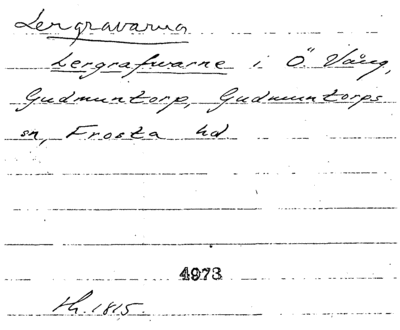 Lergravarna
Lergrafwarne i Ö. Vång,
Gudmuntorp, Gudmuntorps
sn, Frosta hd
4973
th. 1815.